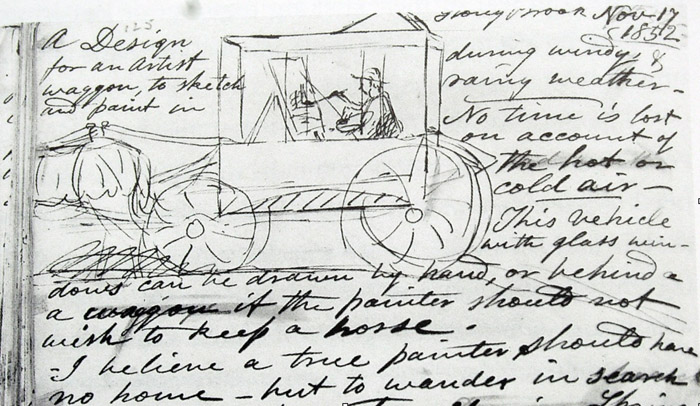 Stony Brook Nov 17
1852
A Design
for an artist
waggon, to sketch
and paint in
during windy, &
rainy weather-
No time is lost
on account of
the hot or
cold air -
This vehicle
with glass win-
dows can be drawn by hand, or behind
a waggon if the painter should not
wish to keep a horse.
-I believe a true painter should have
no home - but to wander in search